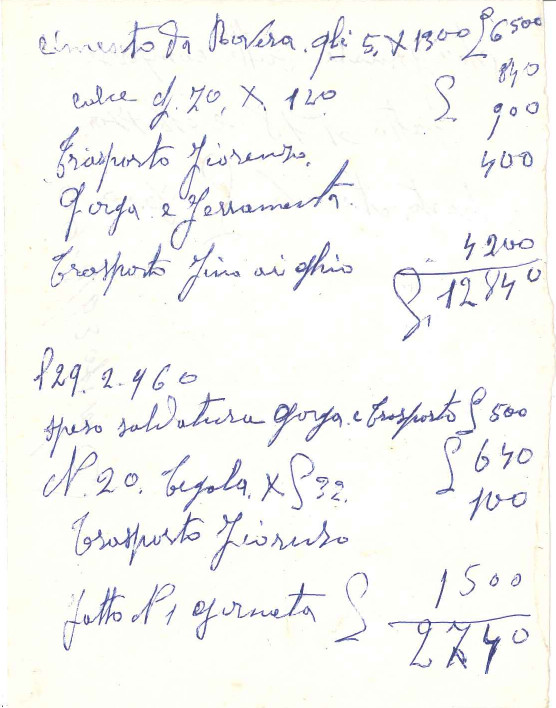 cimento da Rovera. qli 5. X 1300 £ 6500
calce q. 70. X. 120 £ 840
Trasporto Fiorenzo. 900
Gorga e Ferramenta. 400
trasporto fino ai ghio 4200
£. 12840
l 29. 2. 960
speso saldatura gorga e trasporto £ 500
N. 20. tegola. X £ 32. £ 640
trasporto Fiorenzo 100
fatto N 1 giornata £ 1500
2740